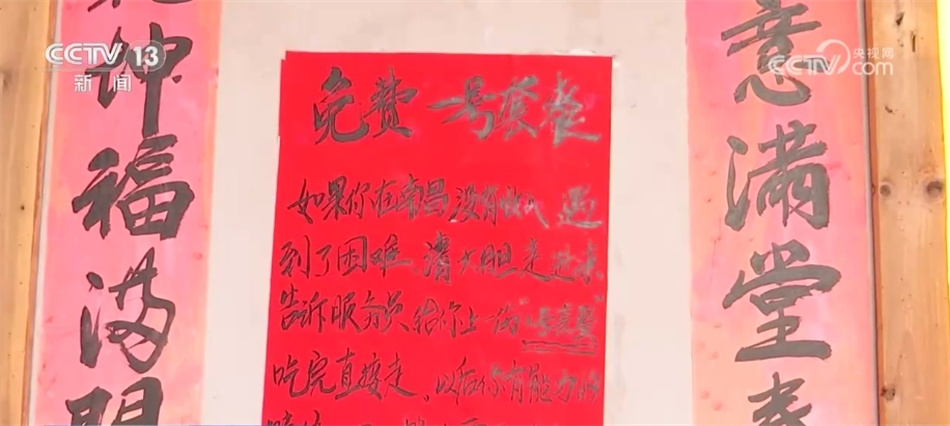 CCTV 13
新闻
央视网
CCTV.com
坤福满門
意满堂春
免费一号套餐
如果你在南昌没有收入遇
到了困难、请大胆走进来、
告诉服务员给你上一份"一号套餐"
吃完直接走、以后你有能力的